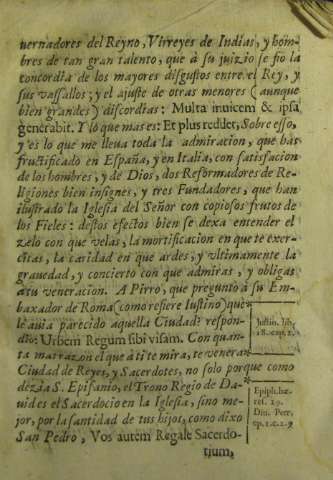 uernadores del Reyno, Virreyes de Indias, y hom-
bres de tan gran talento, que à su juizio se fio la
concordia de los mayores disgustos entre el Rey, y
sus vassallos; y el ajuste de otras menores (aunque
bien grandes) discordias: Multa inuicem & ipsa
generabit. Y lo que mas es: Et plus reddet, Sobre esso,
y es lo que me lleua toda la admiracion, que has
fructificado en España, y en Italia, con satisfacion
de los hombres, y de Dios, dos Reformadores de Re-
ligiones bien insignes, y tres Fundadores, que han
ilustrado la Iglesia del Señor con copiosos frutos de
los Fieles: destos efectos bien se dexa entender el
zelo con que velas, la mortificacion en que te exer-
citas, la caridad en que ardes, y vltimamente la
grauedad, y concierto con que admiras, y obligas
à tu veneracion. A Pirro, que preguntò à su Em-
baxador de Roma (como refiere Iustino) que
le auia parecido aquella Ciudad? respon-
dio: Urbem Regum sibi visam. Con quan-
ta mas razon el que à ti te mira, te veneran
Ciudad de Reyes, y Sacerdotes, no solo porque como
dezia S. Epifanio, el Trono Regio de Da-
uid es el Sacerdocio en la Iglesia, sino me-
jor, por la santidad de tus hijos, como dixo
San Pedro, Vos autem Regale Sacerdo-
tium,
Justin. lib.
18. cap. 2.
Epiph. hæ-
res. 29.
Diu. Petr.
ep. 1. c. 2. 9